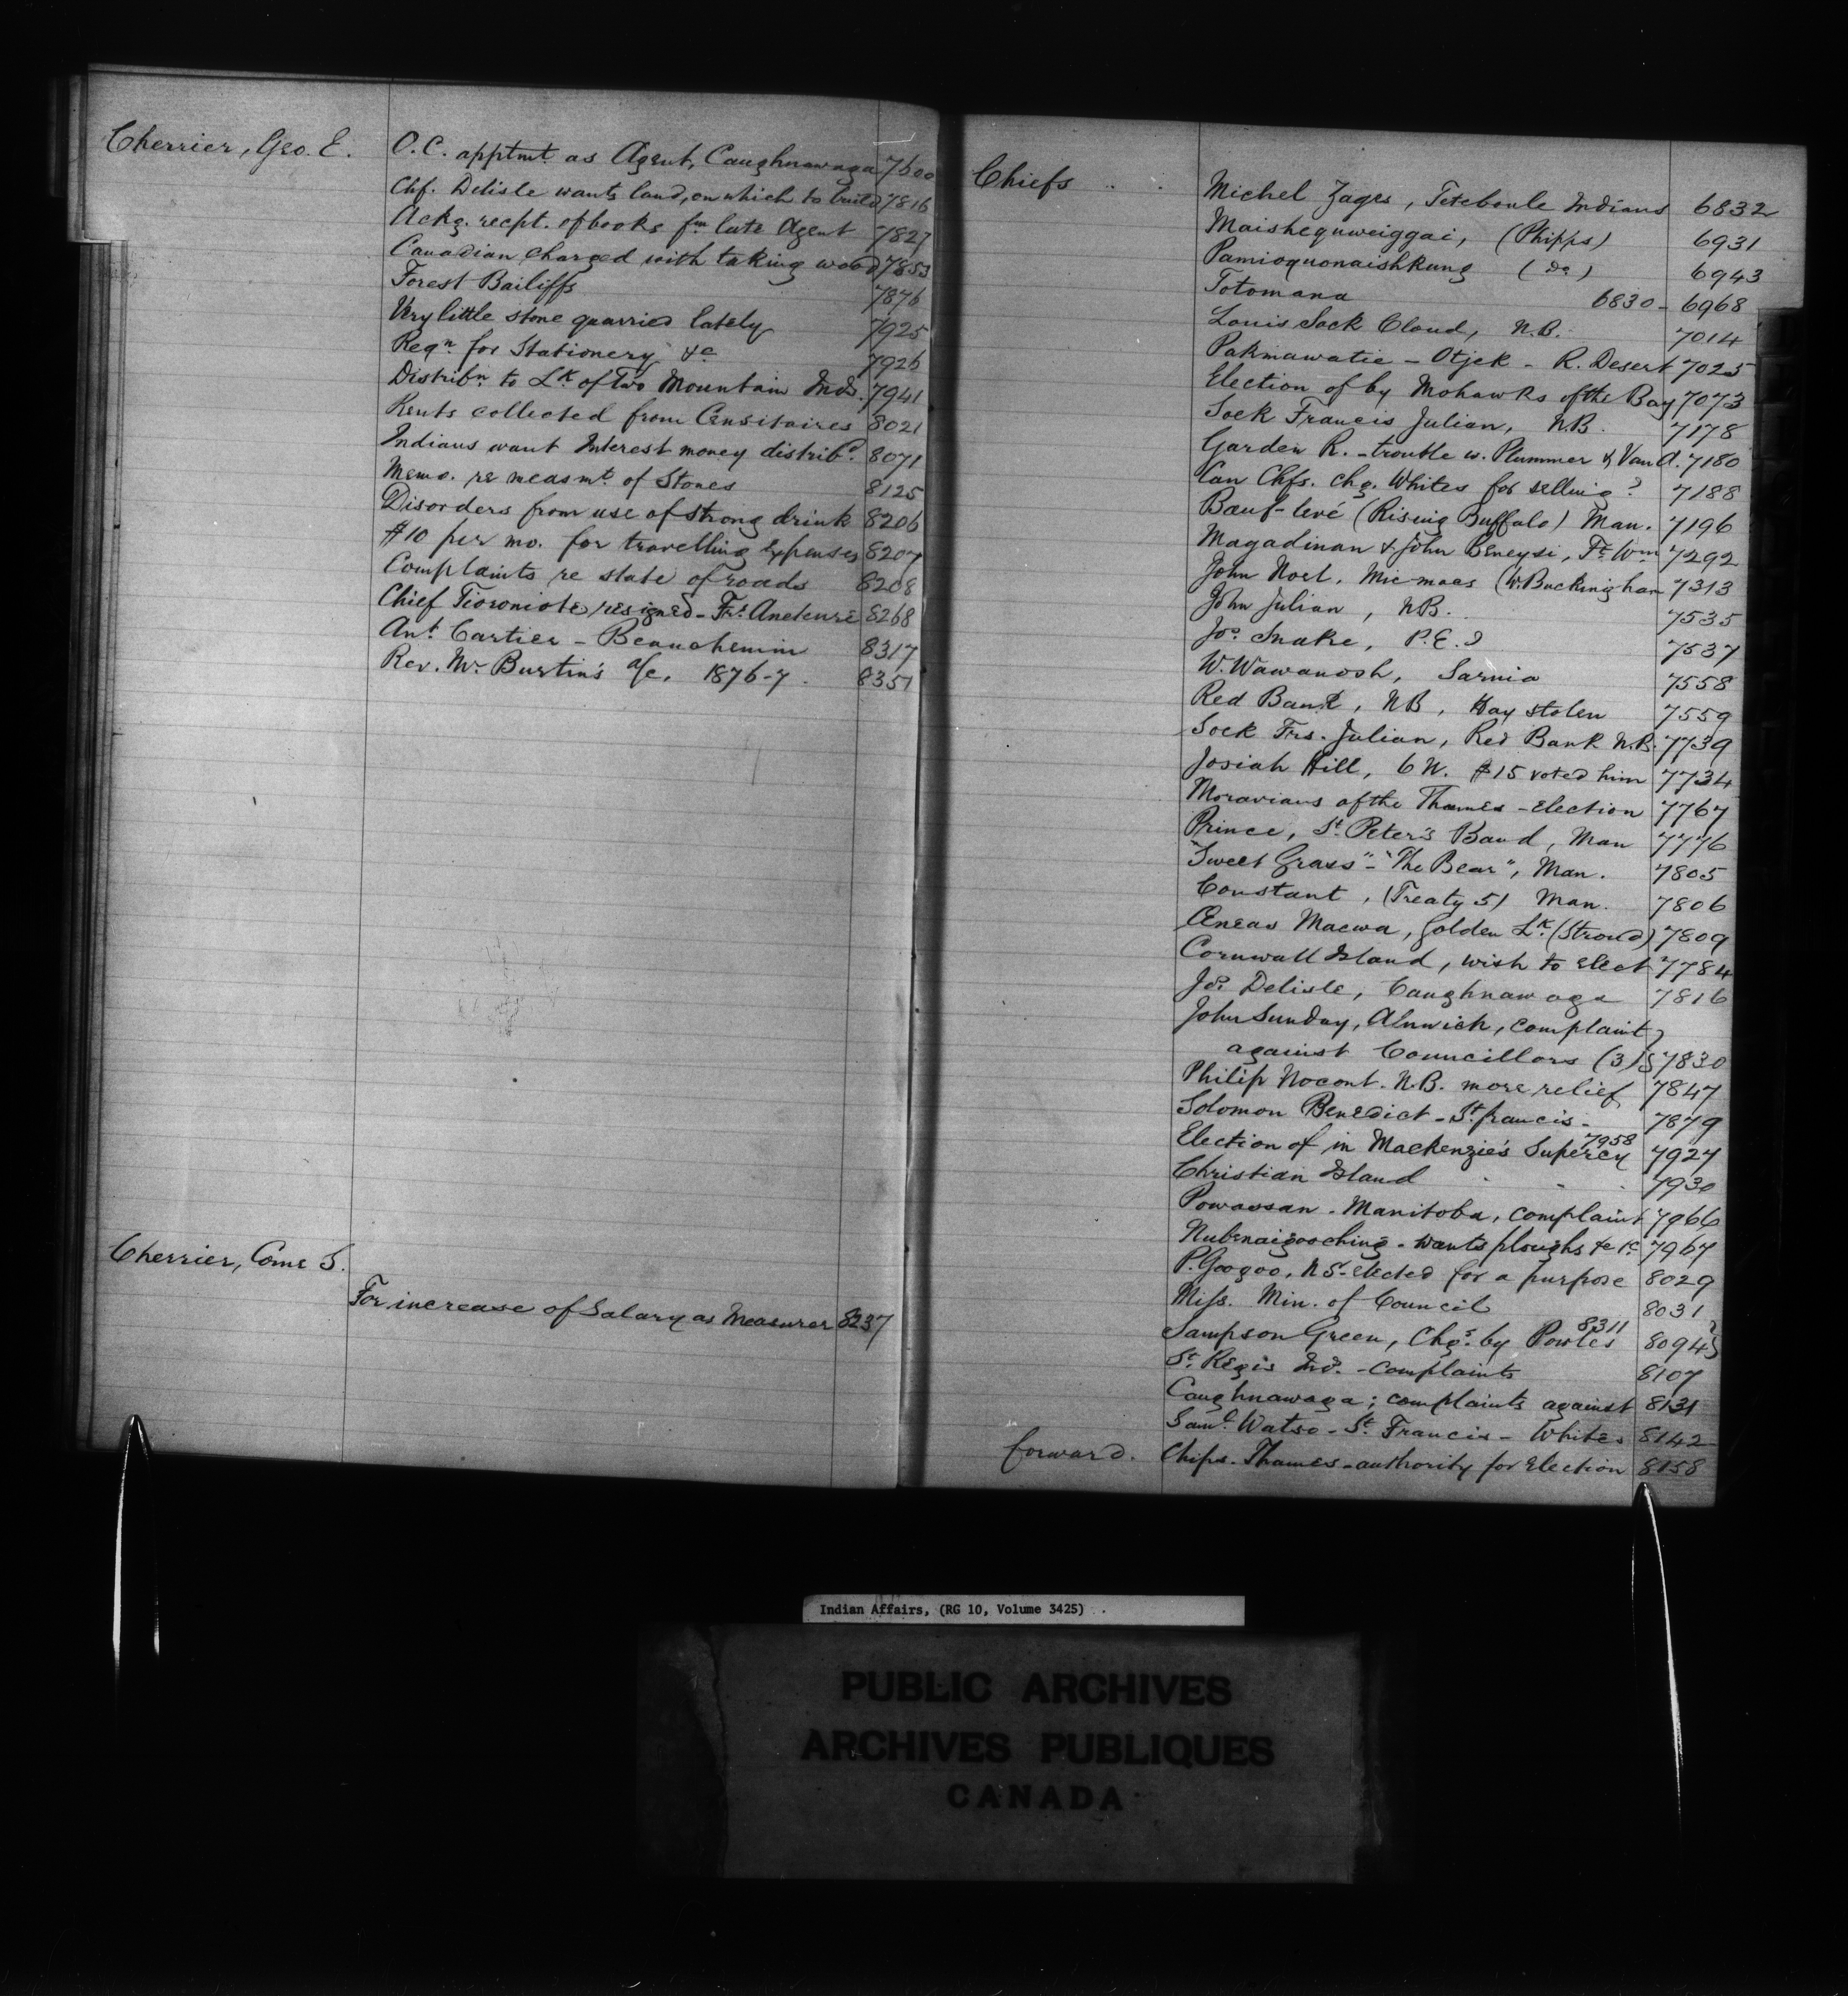 Cherrier, Geo. E. O.C. apptmt as Agent, Caughnawaga 7600
Chf. Delisle wants land, on which to build 7816
Ackg. recpt. of books fm late Agent 7827
Canadian charged with taking wood 7853
Forest Bailiffs 7876
Very little stone quarried lately 7925
Reqn. for Stationery &c 7926
Distribn. to Lk. of Two Mountain Inds. 7941
Rents collected from Censitaires 8021
Indians want Interest money distribd. 8071
Memo. re measmt. of Stones 8125
Disorders from use of strong drink 8206
$10 per mo. for travelling expenses 8207
Complaints re state of roads 8208
Chief Tioroniote resigned - Frs. Aneteure 8268
Ant. Cartier - Beauchemin 8317
Rev. Mr Burtin's a/c. 1876-7. 8351
Cherrier, Come S.
For increase of Salary as Measurer 8237
Chiefs . . Michel Zages, Teteboule Indians 6832
Maishequweiggai, (Phipps) 6931
Pamioquonaishkung (Do) 6943
Totomana 6830 - 6968
Louis Sock Cloud, N.B. 7014
Pakinawatie - Otjek - R. Desert 7025
Election of by Mohawks of the Bay 7073
Sock Francis Julian, N.B. 7178
Garden R. - trouble w. Plummer & Van A. 7180
Can Chfs. chg. Whites for selling? 7188
Bœuf-levé (Rising Buffalo) Man. 7196
Magadinan & John Beneysi, Ft. Wm 7292
John Noel, Mic-macs (W. Buckingham 7313
John Julian, N.B. 7535
Jos. Snake, P.E.I 7537
W. Wawanosh, Sarnia 7558
Red Bank, NB, Hay stolen 7559
Sock Frs. Julian, Red Bank N.B. 7739
Josiah Hill, 6 N. $15 voted him 7734
Moravians of the Thames - Election 7767
Prince, St. Peter's Band, Man 7776
"Sweet Grass" - "The Bear", Man. 7805
Constant, (Treaty 5) Man. 7806
Œneas Macwa, Golden Lk. (Stroud) 7809
Cornwall Island, wish to elect 7784
Jos. Delisle, Caughnawaga 7816
John Sunday, Alnwick, complaint
against Councillors (3) 7830
Philip Nocout. N.B. more relief 7847
Solomon Benedict - St. francis - 7879
Election of in Mackenzie's Supercy 7958 7927
Christian Island . . . 7930
Powassan - Manitoba, complaint 7966
Nubenaigooching - wants ploughs &c &c 7967
P. Googoo, N S - elected for a purpose 8029
Miss. Min. of Council 8031
Sampson Green, Chgs. by Powles 8311 8094
St. Regis Inds. - complaints 8107
Caughnawaga; complaints against 8131
Saml. Watso - St. Francis - Whites 8142
forward. Chips. Thames - authority for Election 8158
Indian Affairs, (RG 10, Volume 3425) .
PUBLIC ARCHIVES
ARCHIVES PUBLIQUES
CANADA